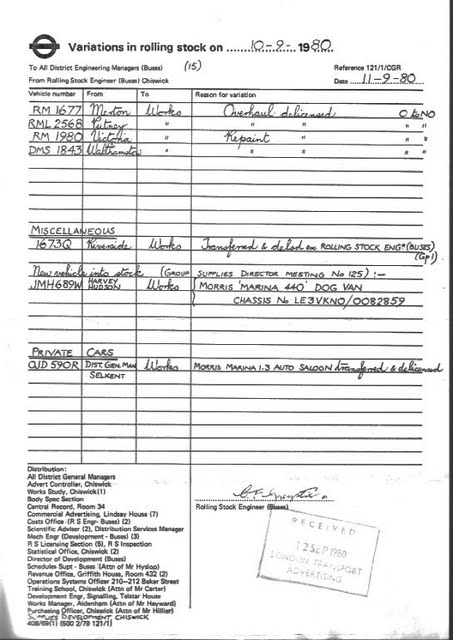 Variations in rolling stock on ........10-9-.. 1980.
To All District Engineering Managers (Buses) (15) Reference 121/1/CGR
From Rolling Stock Engineer (Buses) Chiswick Date ....11-9-80
Vehicle number From To Reason for variation
RM 1677 Merton Works Overhaul delicensed O to NO
RML 2568 Putney " " " "
RM 1980 Victoria " Repaint " " "
DMS 1843 Walthamstow " " " " "
MISCELLANEOUS
1673Q Riverside Works Transferred & delsd ex ROLLING STOCK ENGR (BUSES)
(Gp1)
New vehicle into stock (GROUP SUPPLIES DIRECTOR MEETING No 125) :-
JMH689W HARVEY HUDSON Works MORRIS 'MARINA 440' DOG VAN
CHASSIS No LE3VKNO/0082859
PRIVATE CARS
OJD 590R DIST. GEN. MAN SELKENT Works MORRIS MARINA 1.3 AUTO SALOON transferred & delicensed
Distribution:
All District General Managers
Advert Controller, Chiswick
Works Study, Chiswick(1)
Body Spec Section
Central Record, Room 34
Commercial Advertising, Lindsay House (7)
Costs Office (R S Engr- Buses) (2)
Scientific Adviser (2), Distribution Services Manager
Mech Engr (Development - Buses) (3)
R S Licensing Section (5), R S Inspection
Statistical Office, Chiswick (2)
Director of Development (Buses)
Schedules Supt - Buses (Attn of Mr Hyslop)
Revenue Office, Griffith House, Room 432 (2)
Operations Systems Officer 210-212 Baker Street
Training School, Chiswick (Attn of Mr Carter)
Development Engr, Signalling, Telstar House
Works Manager, Aldenham (Attn of Mr Hayward)
Purchasing Officer, Chiswick (Attn of Mr Hillier)
SUPPLIES DEVELOPMENT, CHISWICK
408/69(1) (500 2/79 121/1)
Rolling Stock Engineer (Buses)
RECEIVED
12 SEP 1980
LONDON TRANSPORT
ADVERTISING